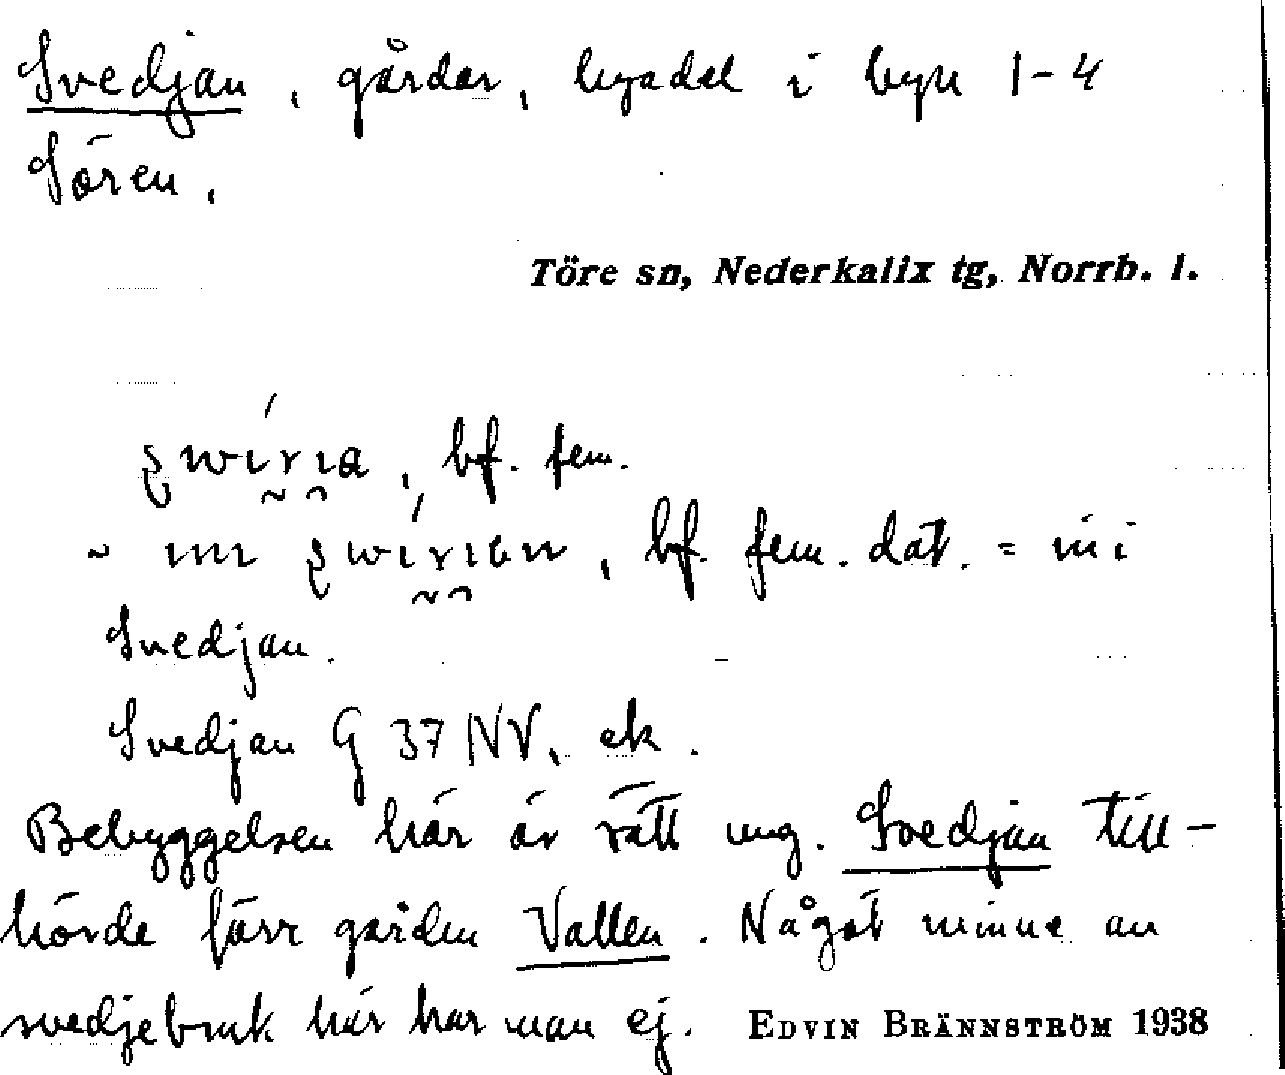 Svedjan, gårdar, byadel i byn 1-4
Sören.
Töre sn, Nederkalix tg, Norrb. l.
bf. fem.
~ bf. fem. dat. = ini
Svedjan.
Svedjan G 37 NV, ek.
Bebyggelsen här är rätt ung. Svedjan till-
hörde förr gården Vallen. Något minne av
svedjebruk här har man ej. EDVIN BRÄNNSTRÖM 1938